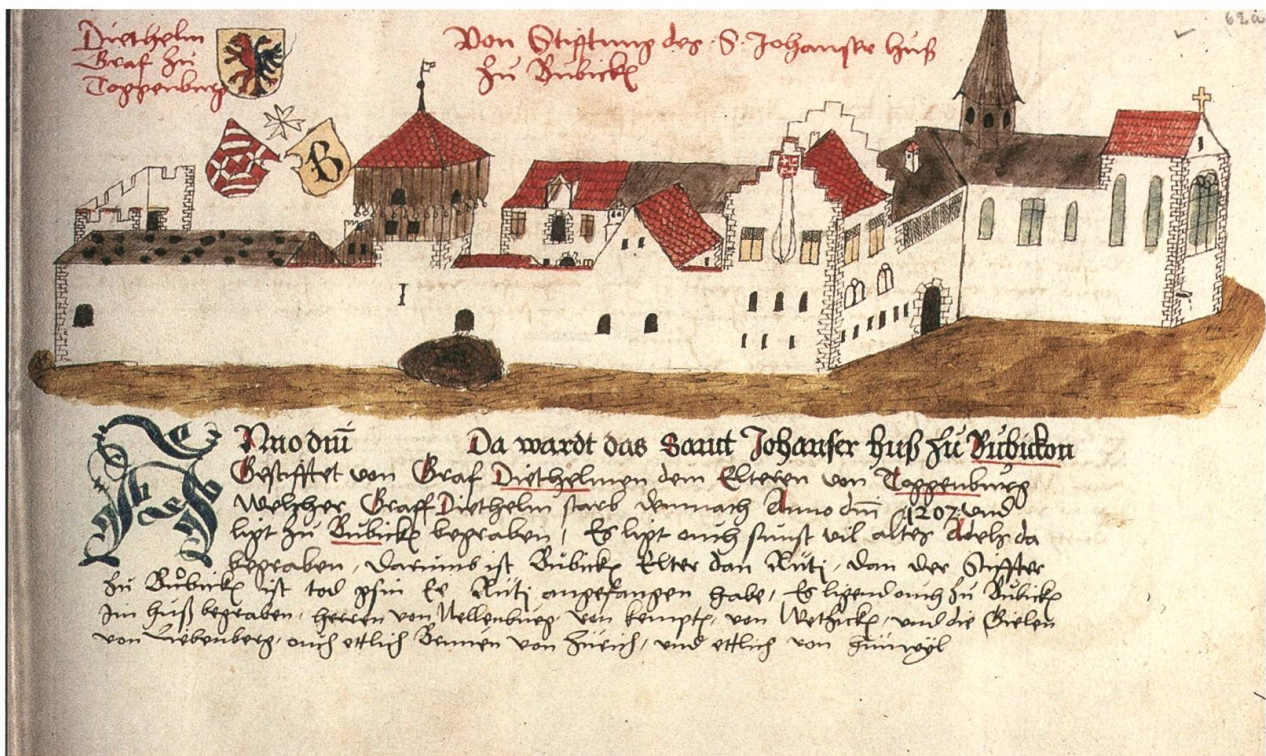 Diethelm
Graf zu
Toggenburg
Von Stifftung des S. Johanser huß
zu Bůbickẽ
62a
B
I
Anno dnĩ Da wardt das Sannt Johanser huß zů Bůbickon
Gestifftet von Graf Diethelmen dem Elteren von Toggenburg
Welcher Graff Diethelm starb demnach Anno dnĩ 1207 und
ligt zu Bubickẽ begraben, Es ligt ouch sunst vil altes Adels da
begraben, Darumb ist Bůbickẽ Elter dan Rüti, dan der Stiffter
zu Bůbickẽ ist tod gsin Ee Rüti angefangen habe, Es ligend ouch zu Bůbickẽ
Im huß begraben, herren von Nellenburg, von kempten, von Wetzickẽ, und die Gielen
von Liebenberg, ouch ettlich Brunen von Zürich, und ettlich von hünwyl